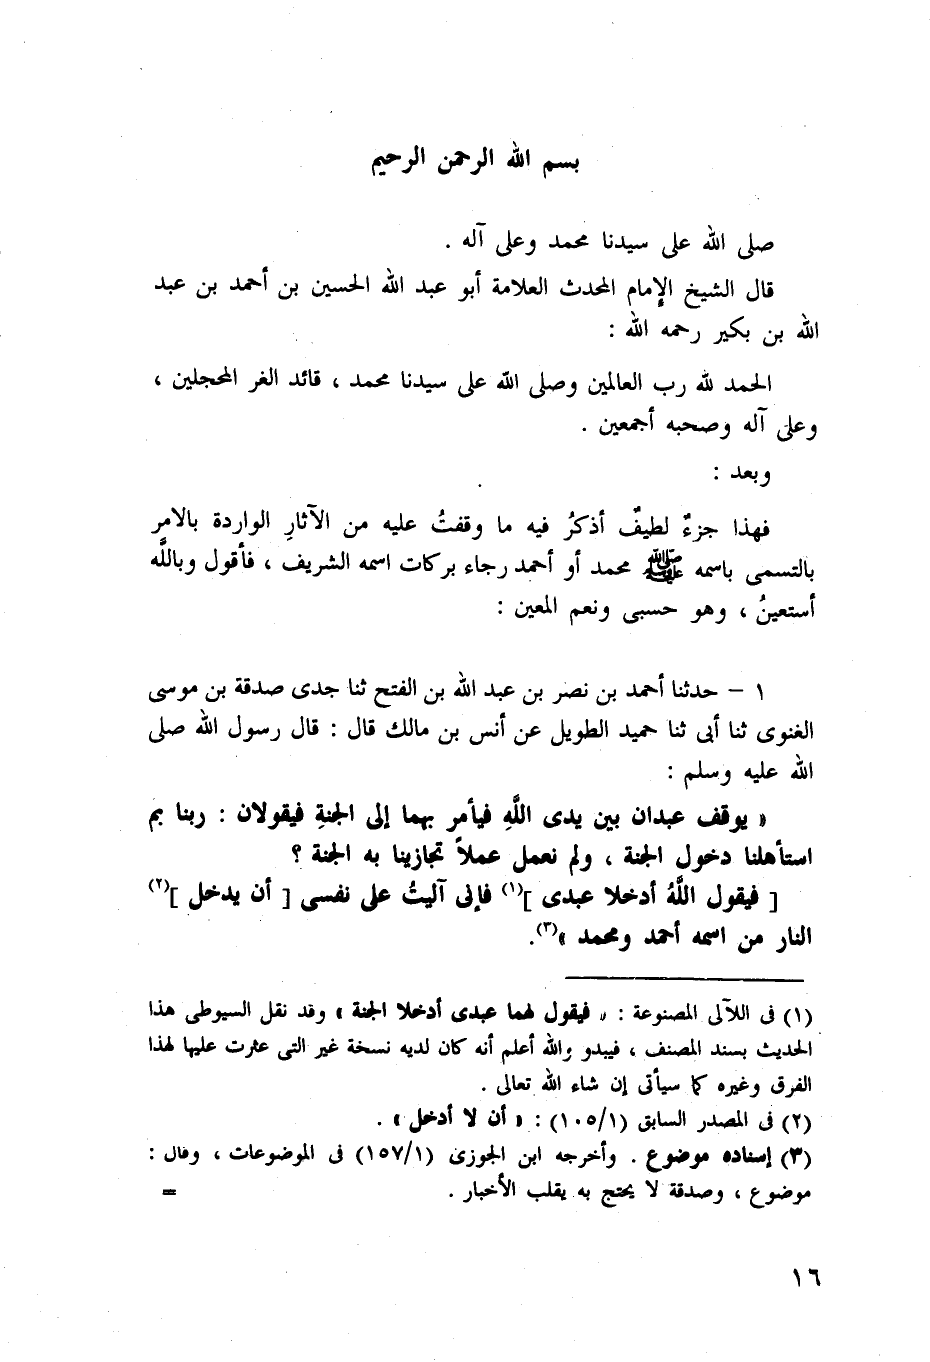 بسم الله الرحمن الرحيم
صلى الله على سيدنا محمد وعلى آله .
قال الشيخ الإمام المحدث العلامة أبو عبد الله الحسين بن أحمد بن عبد
الله بن بكير رحمه الله :
الحمد لله رب العالمين وصلى الله على سيدنا محمد ، قائد الغر المحجلين ،
وعلى آله وصحبه أجمعين .
وبعد :
فهذا جزءٌ لطيفٌ أذكرُ فيه ما وقفتُ عليه من الآثارِ الواردة بالامر
بالتسمى باسمه ﷺ محمد أو أحمد رجاء بركات اسمه الشريف ، فأقول وباللَّه
أستعينُ ، وهو حسبى ونعم المعين :
١ – حدثنا أحمد بن نصر بن عبد الله بن الفتح ثنا جدى صدقة بن موسى
الغنوى ثنا أبى ثنا حميد الطويل عن أنس بن مالك قال : قال رسول الله صلى
الله عليه وسلم :
« يوقف عبدان بين يدى اللَّهِ فيأمر بهما إلى الجنةِ فيقولان : ربنا بم
استأهلنا دخول الجنة ، ولم نعمل عملاً تجازينا به الجنة ؟
[ فيقول اللَّهُ أدخلا عبدى ](١) فإنى آليتُ على نفسى [ أن يدخل ](٢)
النار من اسمه أحمد ومحمد »(٣).
(١) فى اللآلى المصنوعة : « فيقول لهما عبدى أدخلا الجنة » وقد نقل السيوطى هذا
الحديث بسند المصنف ، فيبدو والله أعلم أنه كان لديه نسخة غير التى عثرت عليها لهذا
الفرق وغيره كما سيأتى إن شاء الله تعالى .
(٢) فى المصدر السابق (١٠٥/١) : « أن لا أدخل » .
(٣) إسناده موضوع . وأخرجه ابن الجوزى (١٥٧/١) فى الموضوعات ، وقال :
موضوع ، وصدقة لا يحتج به يقلب الأخبار . =
١٦